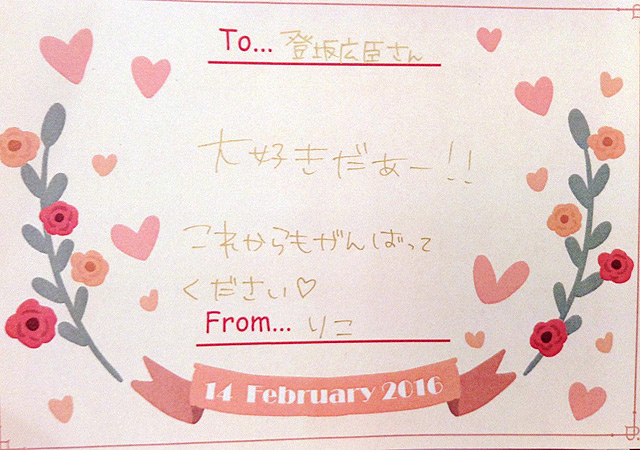 To... 登坂広臣さん
大好きだぁー!!
これからもがんばって
ください♡
From... りこ
14 February 2016